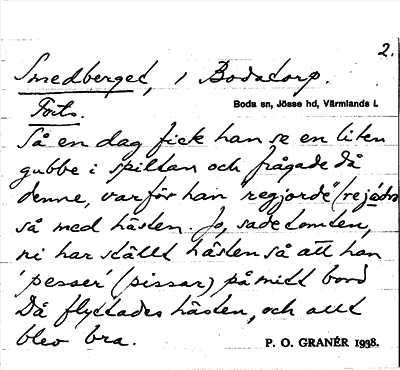 2.
Smedberget, i Bodatorp.
Forts.
Boda sn, Jösse hd, Värmlands l.
Så en dag fick han se en liten
gubbe i spiltan och frågade då
denne, varför han "regjorde" (rejädes
så med hästen. Jo, sade tomten,
ni har ställt hästen så att han
'pesser' (pissar) på mitt bord
Då flyttades hästen, och allt
blev bra.
P. O. GRANÉR 1938.